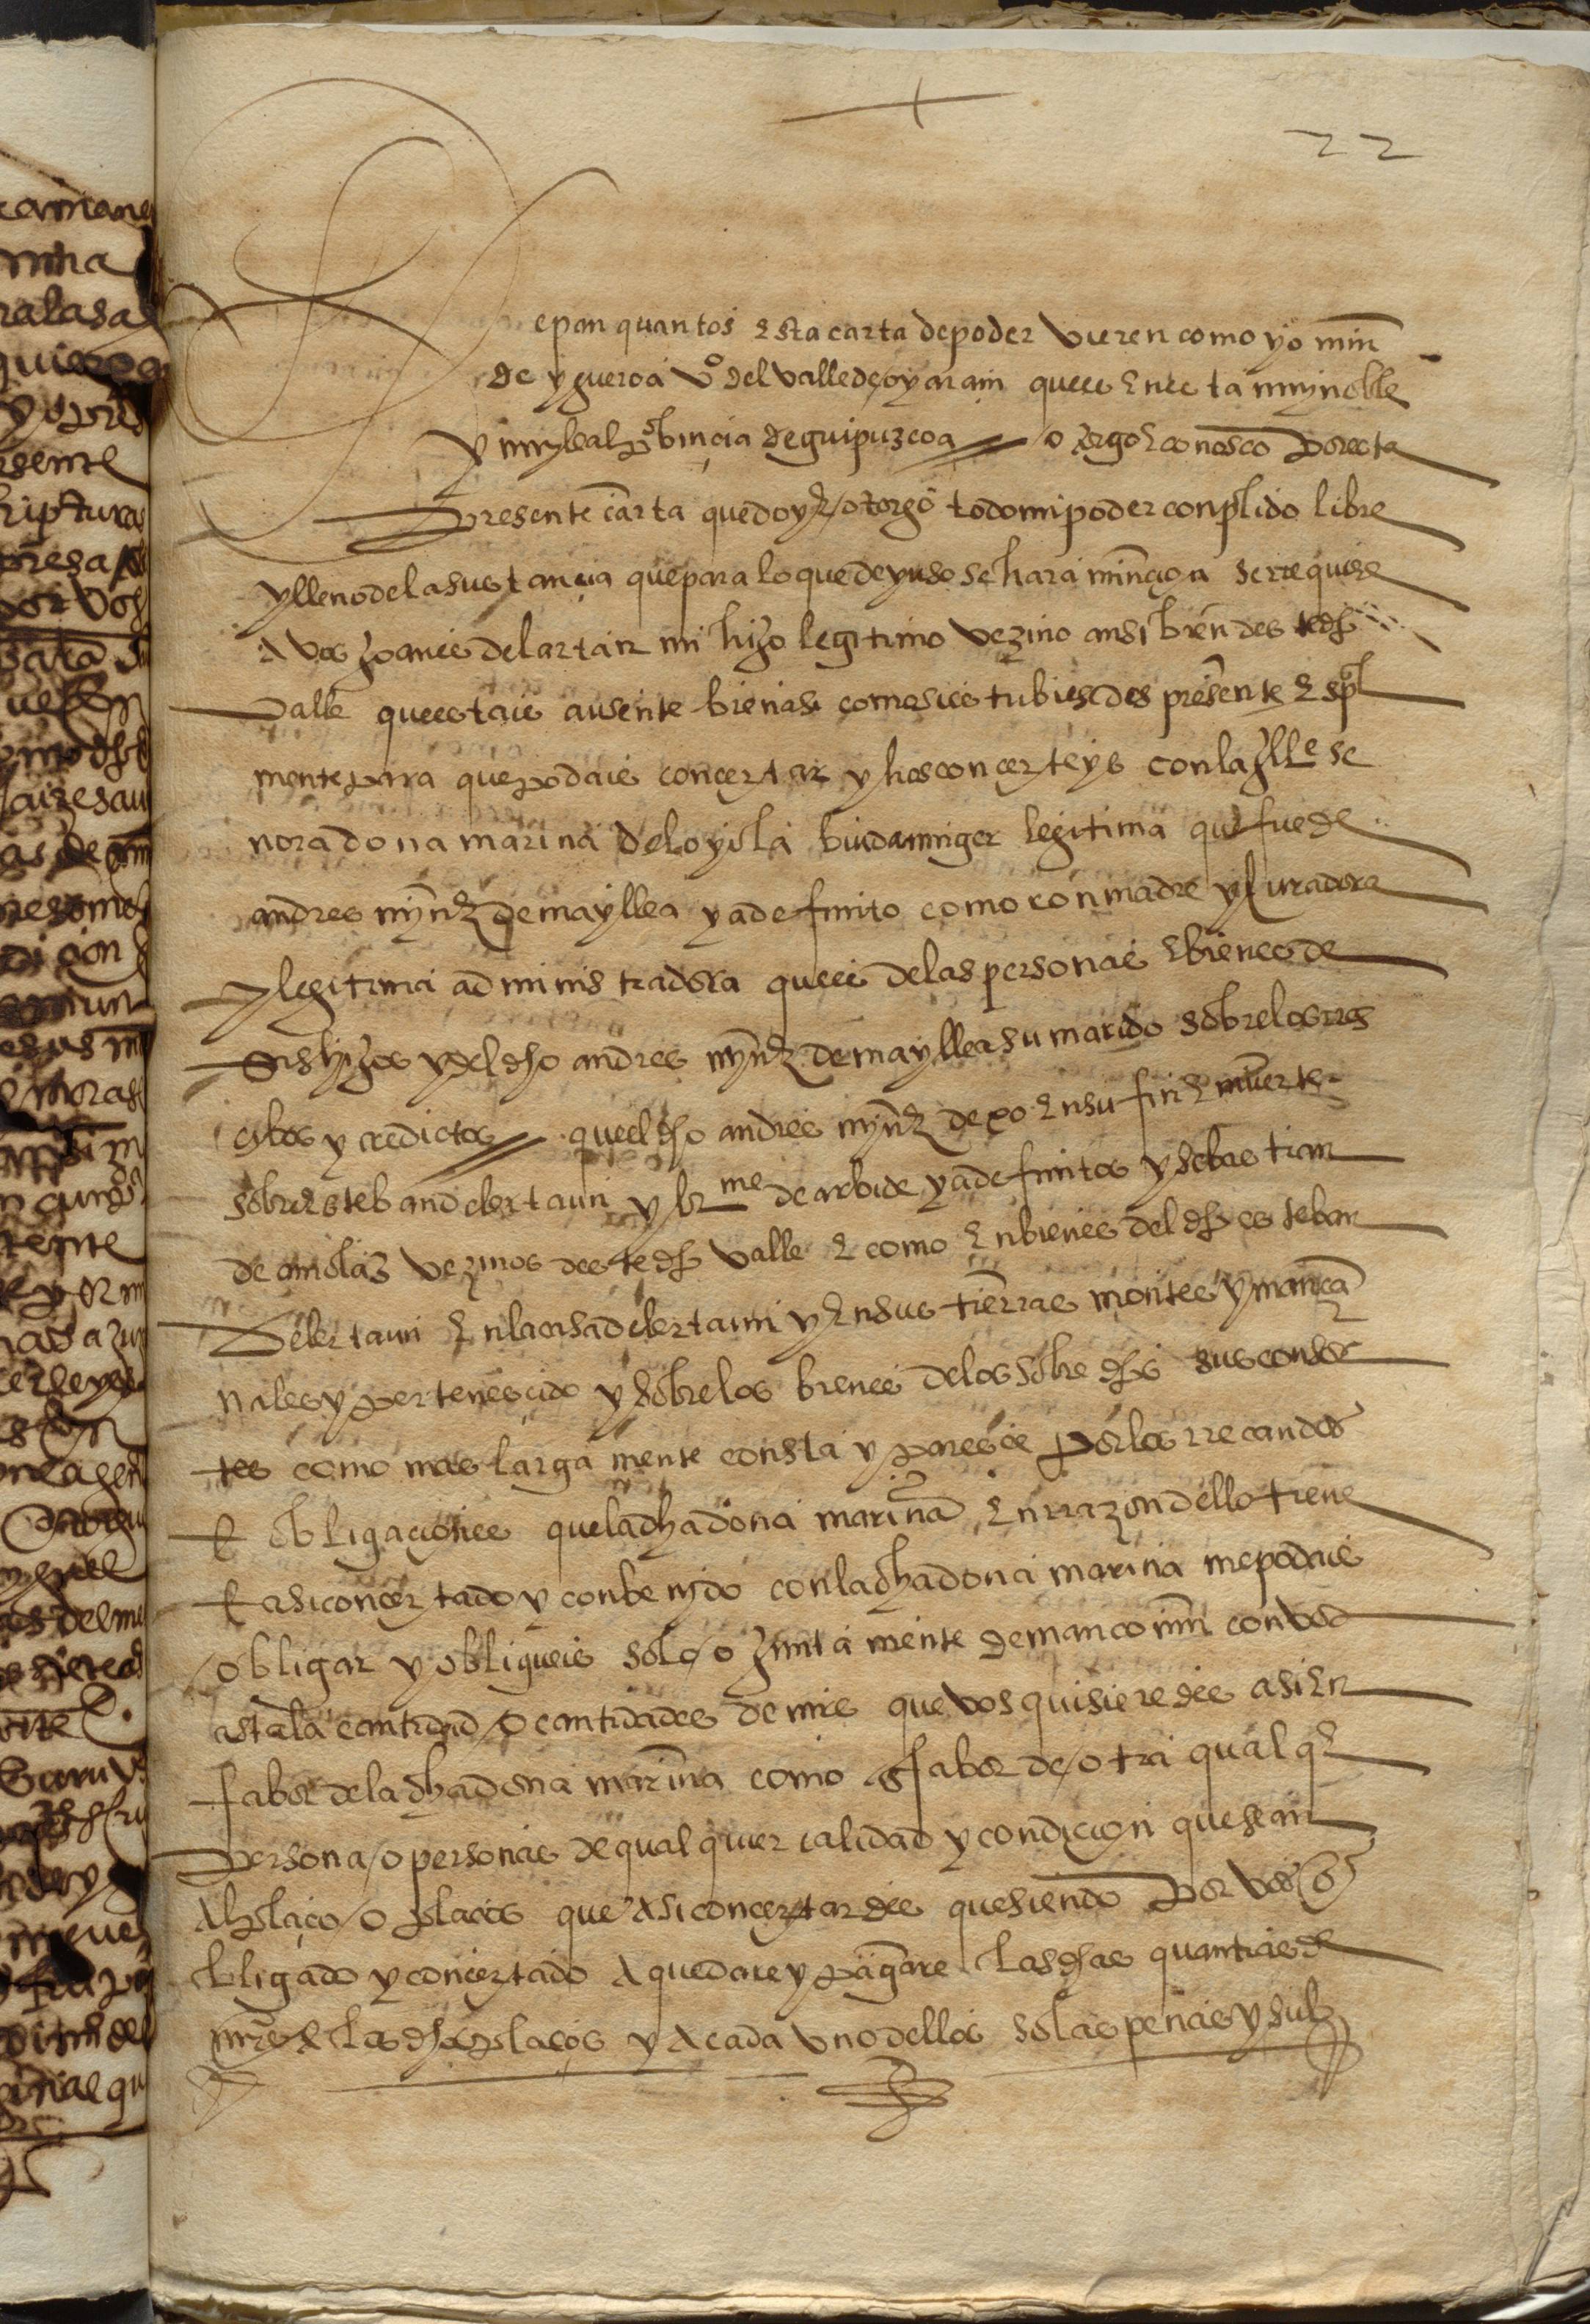 22
Sepan quantos esta carta de poder vieren como yo mīn
de ygueroa vº del valle de oyarçun que es en esta muy noble
y muy leal probinçia de guipuzcoa otorgo e conosco por esta
presente carta que doy y otorgo todo mi poder conplido libre
y lleno de la sustançia que para lo que de yuso se hara minçion se rrequiere
a vos joanes de lartaun mi hijo legitimo vezino ansi bien deste dho
valle que estais ausente bien asi como si estubiesedes presente espīal
mente para que podais conçertar y hos conçerteys con la yllē se
nora dona marina de loyola biuda muger legitima que fue de
andres mȳnz de mayllea ya defunto como con madre y curadora
y legitima administradora que es de las personas e bienes de
sus hijos y del dho andres mȳnz de mayllea su marido sobre los rre
cibos y credictos que el dho andres mȳnz dexo en su fin e muerte
sobre esteban de lartaun y brme de arbide ya defuntos y sebastian
de amolaz vezinos deste dho valle e como en bienes del dho esteban
de lartaun en la casa de lartaun y en sus tierras montes y mançā
nales y pertenesçido y sobre los bienes de los sobre dhos sus consor
tes como mas larga mente consta y paresçe por los rrecaudos
e obligaçiones que la dha dona marina en rrazon dello tiene
e asi conçertado y conbenydo con la dha dona marina me podais
obligar y obligueis solo o juntamente de mancomun con vos
asta la cantidad o cantidades de mrs que vos quisieredes asi en
fabor de la dha dona marina como en fabor de otra qual qr
persona o personas de qualquier calidad y condiçion que sean
al plaço o plaços que asi conçertardes que siendo por vos o
bligado y conçertado a que dare y pagare las dhas quantias de
mrs a los dhos plaços y a cada vno dellos so las penas y sub